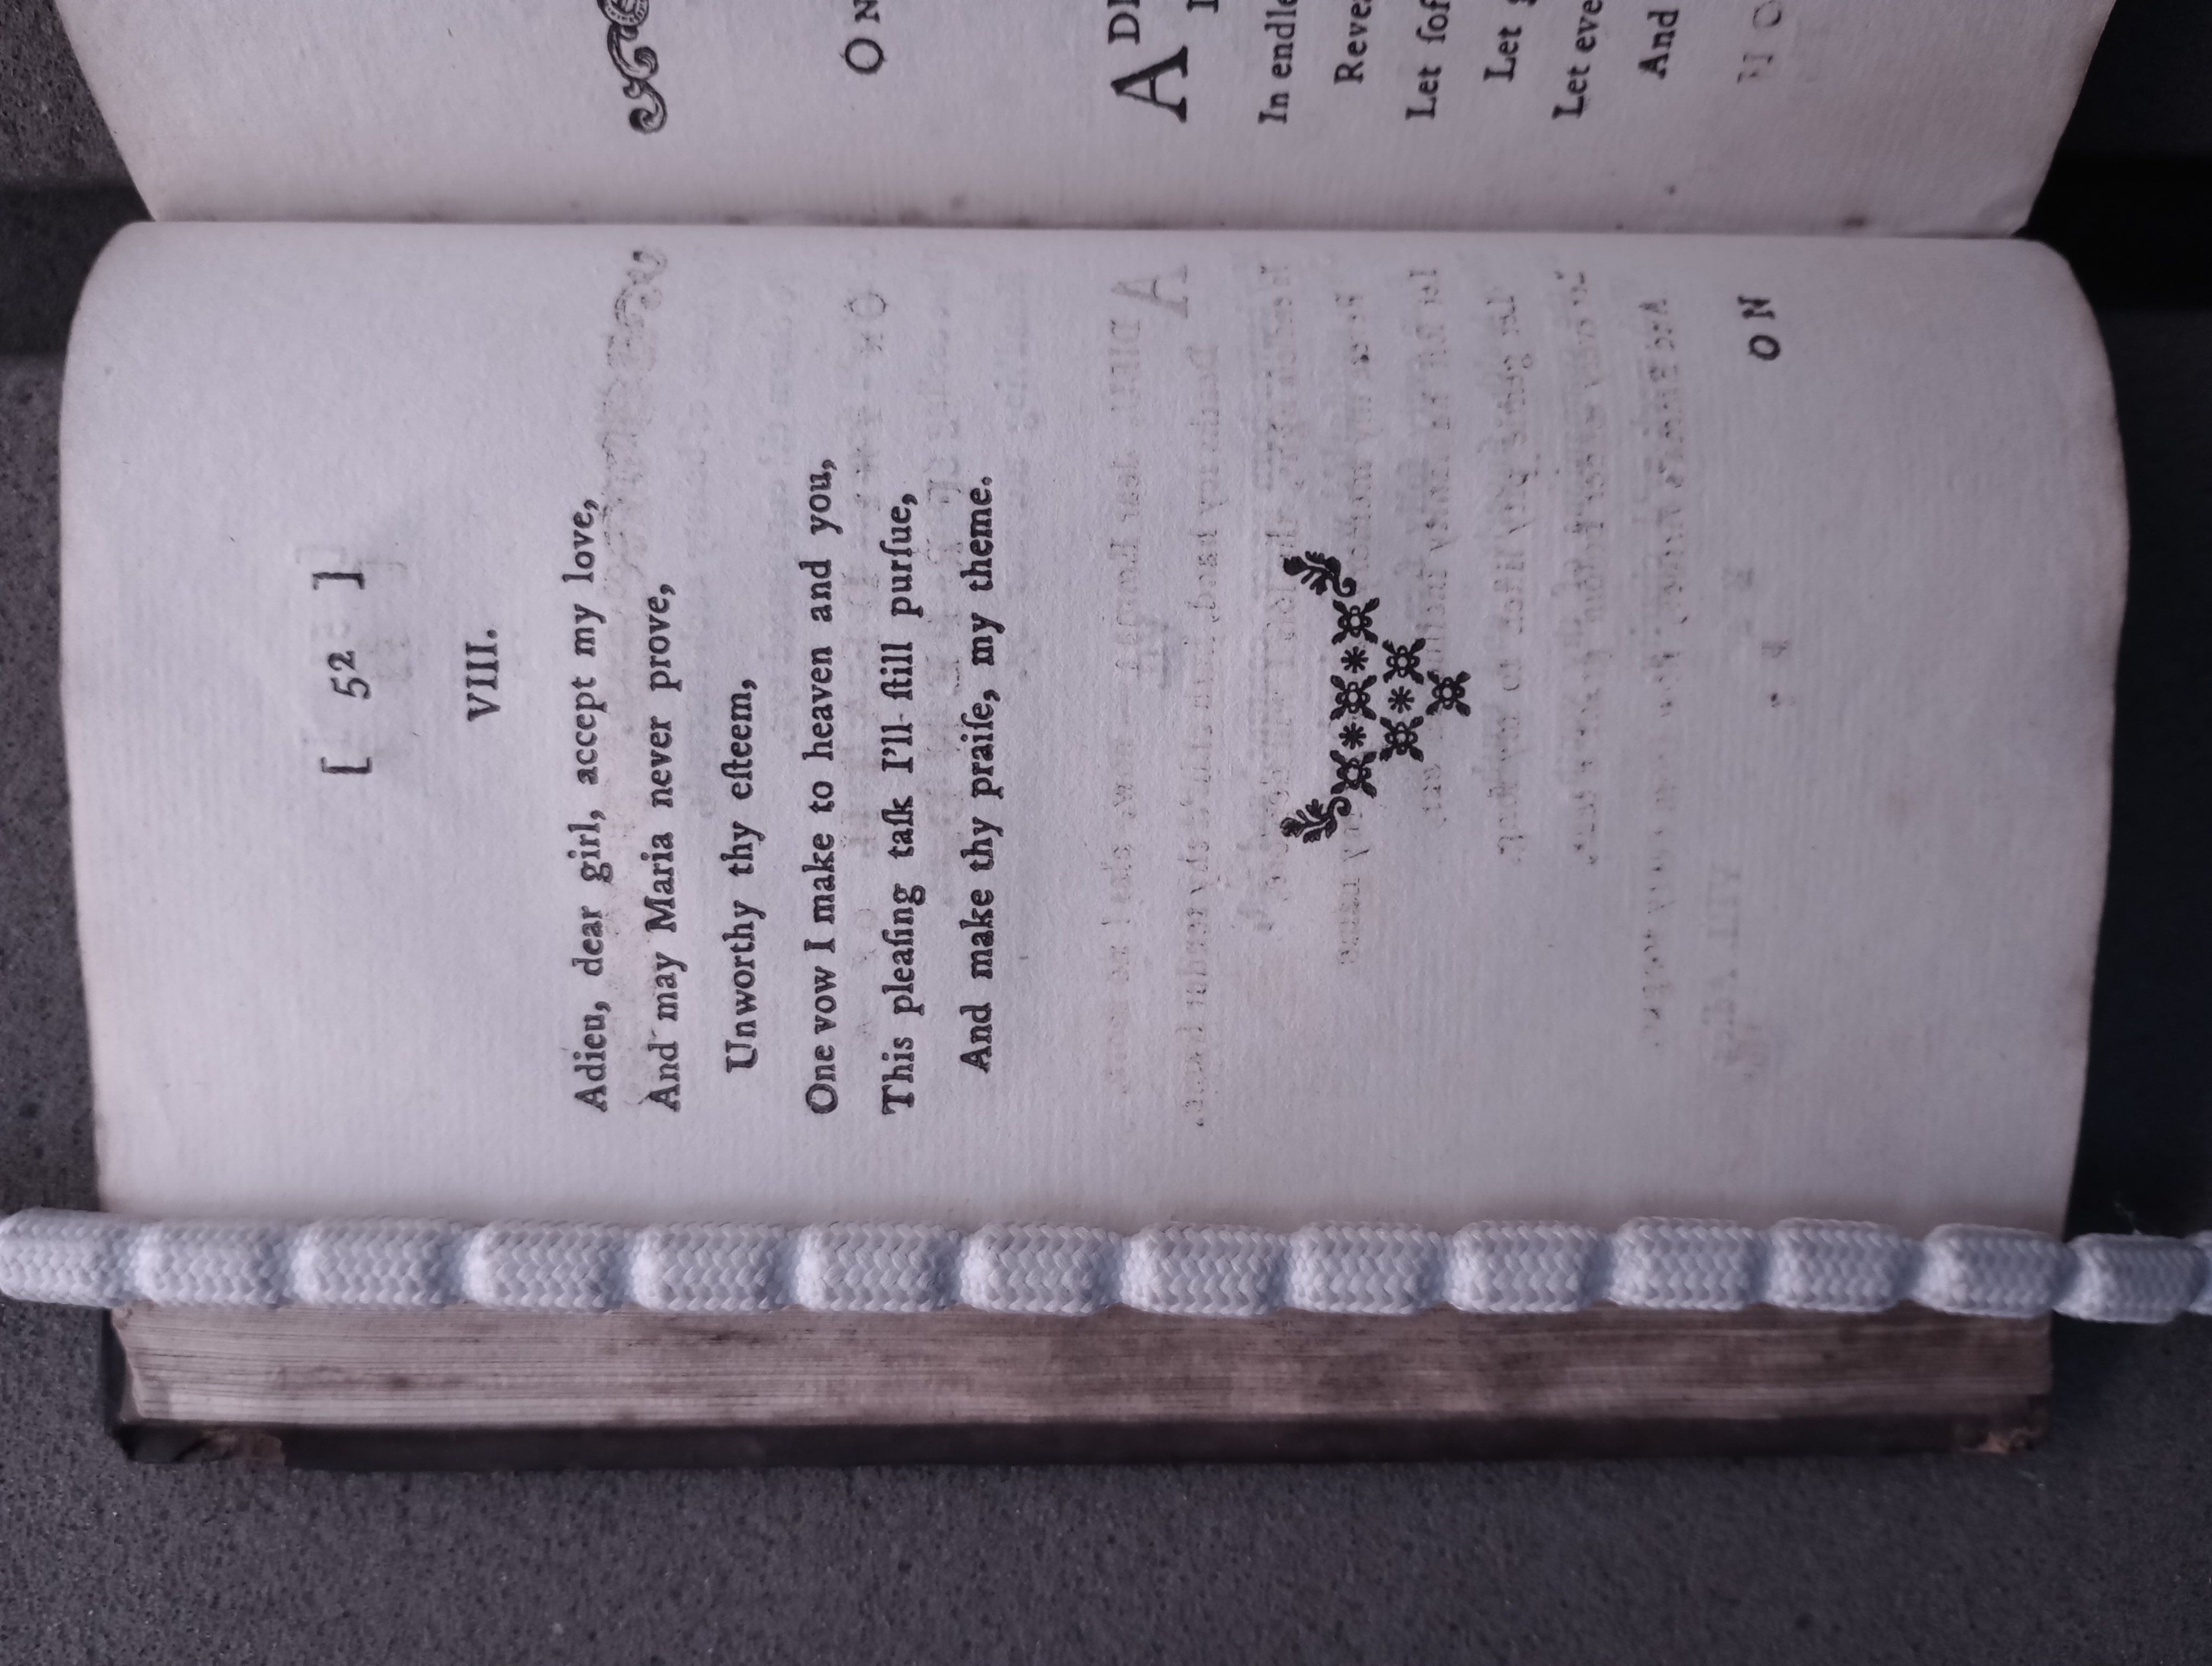 [ 52 ]
VIII.
Adieu, dear girl, accept my love,
And may Maria never prove,
Unworthy thy eſteem,
One vow I make to heaven and you,
This pleaſing taſk I'll ſtill purſue,
And make thy praiſe, my theme.
ON
ON
ADI
In endle
Reve
Let ſof
Let
Let eve
And